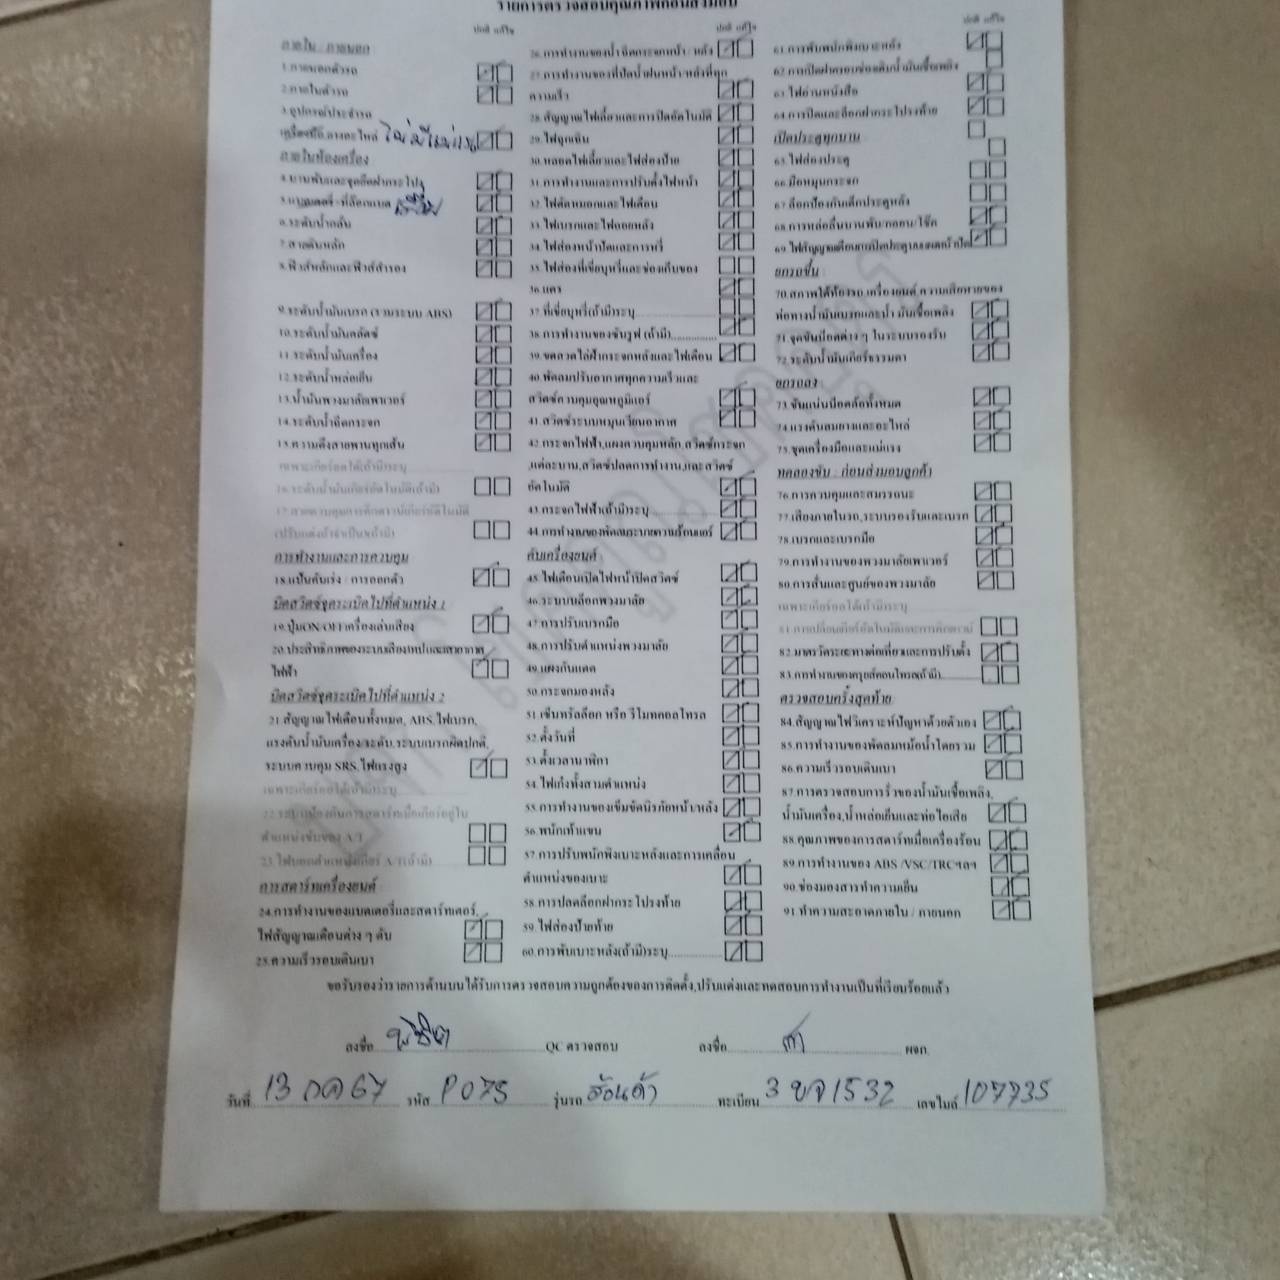 รายการตรวจสอบคุณภาพก่อนส่งมอบ
ปกติ แก้ไข
ภายใน / ภายนอก
1.ภายนอกตัวรถ
2.ภายในตัวรถ
3.อุปกรณ์ประจำรถ
เครื่องมือ,ยางอะไหล่
ภายในห้องเครื่อง
4.บานพับและจุดยึดฝากระโปรง
5.แบตเตอรี่ - ที่ล๊อกแบต
6.ระดับน้ำกลั่น
7.สายดินหลัก
8.ฟิวส์หลักและฟิวส์สำรอง
9.ระดับน้ำมันเบรก (รวมระบบ ABS)
10.ระดับน้ำมันคลัตช์
11.ระดับน้ำมันเครื่อง
12.ระดับน้ำหล่อเย็น
13.น้ำมันพวงมาลัยเพาเวอร์
14.ระดับน้ำฉีดกระจก
15.ความตึงสายพานทุกเส้น
เฉพาะเกียร์ออโต้(ถ้ามี)ระบุ
16.ระดับน้ำมันเกียร์อัตโนมัติ(ถ้ามี)
17.สายควบคุมการคิกดาวน์เกียร์อัตโนมัติ
(ปรับแต่งถ้าจำเป็น)(ถ้ามี)
การทำงานและการควบคุม
18.แป้นคันเร่ง / การออกตัว
บิดสวิตช์จุดระเบิดไปที่ตำแหน่ง 1
19.ปุ่มON/OFFเครื่องเล่นเสียง
20.ประสิทธิภาพของระบบเสียง/เทปและเสาอากาศ
ไฟฟ้า
บิดสวิตช์จุดระเบิดไปที่ตำแหน่ง 2
21.สัญญาณไฟเตือนทั้งหมด, ABS,ไฟเบรก,
แรงดันน้ำมันเครื่อง/ระดับ,ระบบเบรกผิดปกติ,
ระบบควบคุม SRS,ไฟแรงสูง
เฉพาะเกียร์ออโต้(ถ้ามี)ระบุ
22.ระบบป้องกันการสตาร์ทเมื่อเกียร์อยู่ใน
ตำแหน่งขับของ A/T
23.ไฟบอกตำแหน่งเกียร์ A/T(ถ้ามี)
การสตาร์ทเครื่องยนต์
24.การทำงานของแบตเตอรี่และสตาร์ทเตอร์,
ไฟสัญญาณเตือนต่าง ๆ ดับ
25.ความเร็วรอบเดินเบา
ปกติ แก้ไข
26.การทำงานของน้ำฉีดกระจกหน้า / หลัง
27.การทำงานของที่ปัดน้ำฝนหน้า/หลังที่ทุก
ความเร็ว
28.สัญญาณไฟเลี้ยวและการปิดอัตโนมัติ
29.ไฟฉุกเฉิน
30.หลอดไฟเลี้ยวและไฟส่องป้าย
31.การทำงานและการปรับตั้งไฟหน้า
32.ไฟตัดหมอกและไฟเตือน
33.ไฟเบรกและไฟถอยหลัง
34.ไฟส่องหน้าปัดและการหรี่
35.ไฟส่องที่เขี่ยบุหรี่และช่องเก็บของ
36.แตร
37.ที่เขี่ยบุหรี่(ถ้ามี)ระบุ
38.การทำงานของซันรูฟ (ถ้ามี)
39.ขดลวดไล่ฝ้ากระจกหลังและไฟเตือน
40.พัดลมปรับอากาศทุกความเร็วและ
สวิตช์ควบคุมอุณหภูมิแอร์
41.สวิตช์ระบบหมุนเวียนอากาศ
42.กระจกไฟฟ้า,แผงควบคุมหลัก,สวิตช์กระจก
,แต่ละบาน,สวิตช์ปลดการทำงาน,และสวิตช์
อัตโนมัติ
43.กระจกไฟฟ้า(ถ้ามี)ระบุ
44.การทำงานของพัดลมระบายความร้อนแอร์
ดับเครื่องยนต์ :
45.ไฟเตือนเปิดไฟหน้า/ปิดสวิตช์
46.ระบบล๊อกพวงมาลัย
47.การปรับเบรกมือ
48.การปรับตำแหน่งพวงมาลัย
49.แผงกันแดด
50.กระจกมองหลัง
51.เซ็นทรัลล๊อก หรือ รีโมทคอลโทรล
52.ตั้งวันที่
53.ตั้งเวลานาฬิกา
54.ไฟเก๋งทั้งสามตำแหน่ง
55.การทำงานของเข็มขัดนิรภัยหน้า/หลัง
56.พนักเท้าแขน
57.การปรับพนักพิงเบาะหลังและการเคลื่อน
ตำแหน่งของเบาะ
58.การปลดล๊อกฝากระโปรงท้าย
59.ไฟส่องป้ายท้าย
60.การพับเบาะหลัง(ถ้ามี)ระบุ
ปกติ แก้ไข
61.การพับพนักพิงเบาะหลัง
62.การเปิดฝาครอบช่องเติมน้ำมันเชื้อเพลิง
63.ไฟอ่านหนังสือ
64.การปิดและล๊อกฝากระโปรงท้าย
เปิดประตูทุกบาน
65.ไฟส่องประตู
66.มือหมุนกระจก
67.ล๊อกป้องกันเด็กประตูหลัง
68.การหล่อลื่นบานพับ/กลอน/โช๊ค
69.ไฟสัญญาณเตือนการปิดประตูบนแผงหน้าปัด
ยกรถขึ้น :
70.สภาพใต้ท้องรถ,เครื่องยนต์,ความเสียหายของ
ท่อทางน้ำมันเบรกและน้ำมันเชื้อเพลิง
71.จุดขันน๊อตต่าง ๆ ในระบบรองรับ
72.ระดับน้ำมันเกียร์ธรรมดา
ยกรถลง :
73.ขันแน่นน๊อตล้อทั้งหมด
74.แรงดันลมยางและอะไหล่
75.ชุดเครื่องมือและแม่แรง
ทดลองขับ : ก่อนส่งมอบลูกค้า
76.การควบคุมและสมรรถนะ
77.เสียงภายในรถ,ระบบรองรับและเบรก
78.เบรกและเบรกมือ
79.การทำงานของพวงมาลัยเพาเวอร์
80.การสั่นและศูนย์ของพวงมาลัย
เฉพาะเกียร์ออโต้(ถ้ามี)ระบุ
81.การเปลี่ยนเกียร์อัตโนมัติและการคิกดาวน์
82.มาตรวัดระยะทางต่อเที่ยวและการปรับตั้ง
83.การทำงานของครูสคอนโทรล(ถ้ามี)
ตรวจสอบครั้งสุดท้าย
84.สัญญาณไฟวิเคราะห์ปัญหาด้วยตัวเอง
85.การทำงานของพัดลมหม้อน้ำโดยรวม
86.ความเร็วรอบเดินเบา
87.การตรวจสอบการรั่วของน้ำมันเชื้อเพลิง,
น้ำมันเครื่อง,น้ำหล่อเย็นและท่อไอเสีย
88.คุณภาพของการสตาร์ทเมื่อเครื่องร้อน
89.การทำงานของ ABS /VSC/TRCฯลฯ
90.ช่องมองสารทำความเย็น
91.ทำความสะอาดภายใน / ภายนอก
ขอรับรองว่ารายการด้านบนได้รับการตรวจสอบความถูกต้องของการติดตั้ง,ปรับแต่งและทดสอบการทำงานเป็นที่เรียบร้อยแล้ว
ลงชื่อ QC ตรวจสอบ ลงชื่อ ผจก.
วันที่ 13 กค 67 รหัส P075 รุ่นรถ ฮอนด้า ทะเบียน 3 ขจ 1532 เลขไมล์ 107735